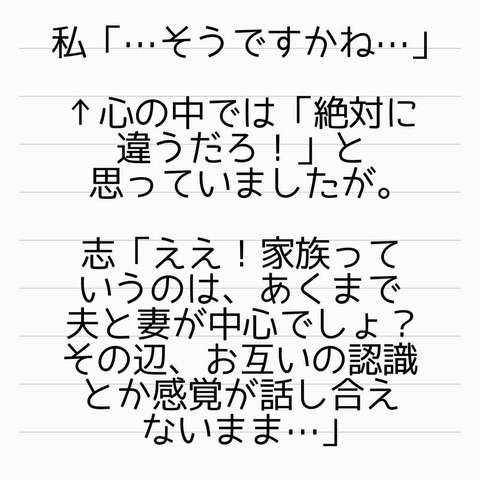 私「…そうですかね…」
↑心の中では「絶対に
違うだろ！」と
思っていましたが。
志「ええ！家族って
いうのは、あくまで
夫と妻が中心でしょ？
その辺、お互いの認識
とか感覚が話し合え
ないまま…」